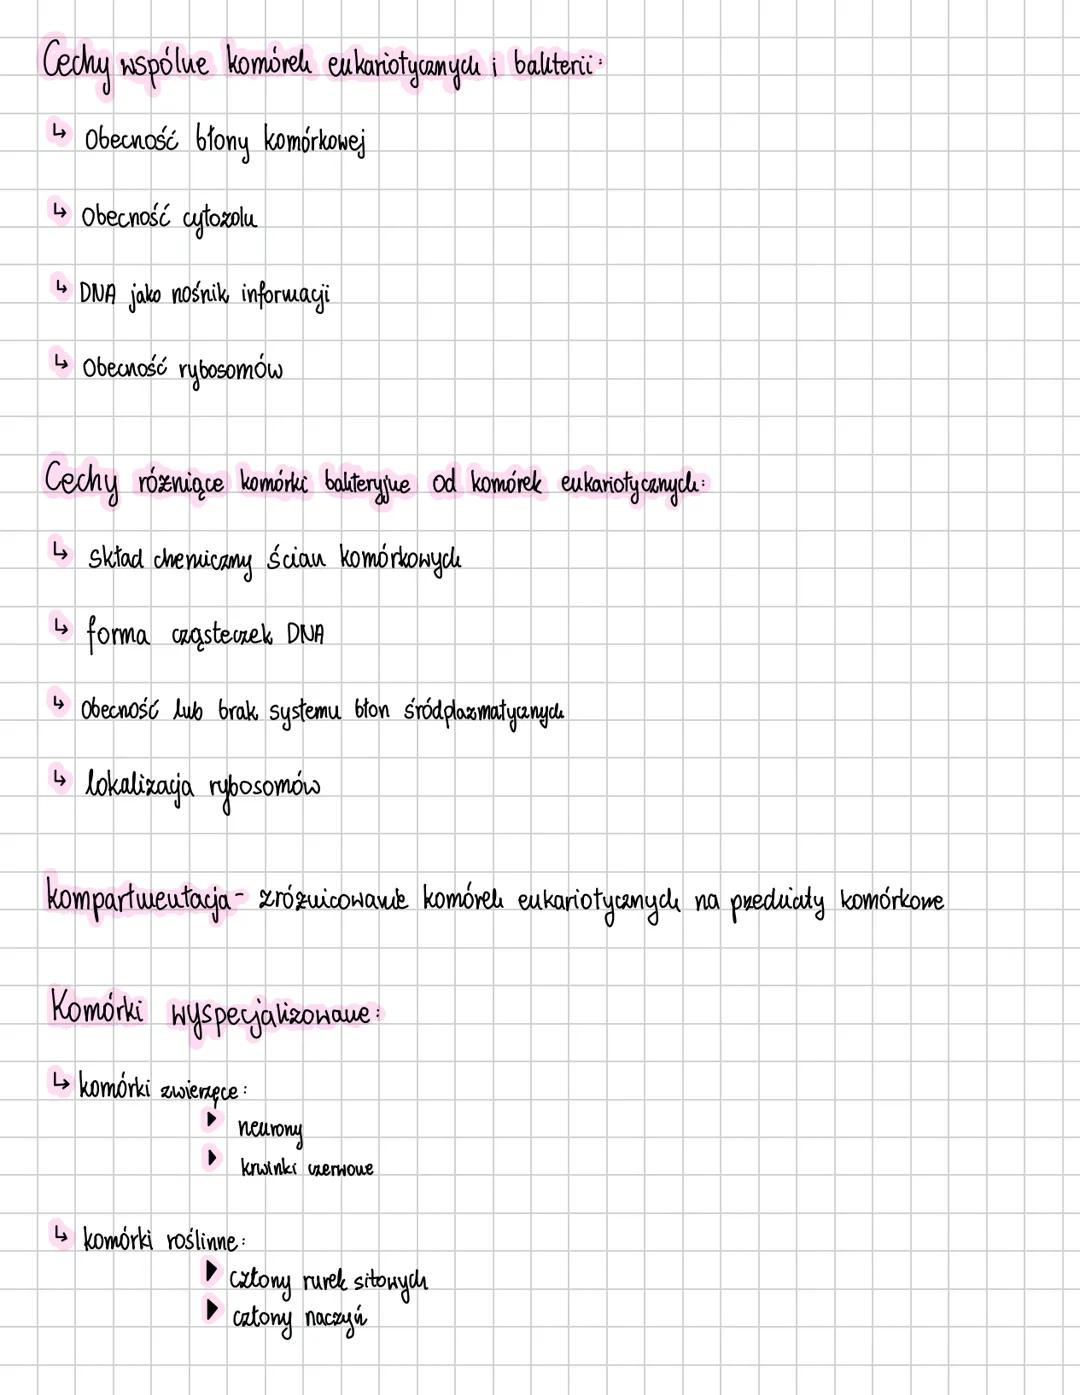 Cechy wspólne komórek eukariotycznych i bakterii:
↳ Obecność błony komórkowej
↳ Obecność cytozolu
↳ DNA jako nośnik informacji
↳ Obecność rybosomów
Cechy różniące komórki bakteryjne od komórek eukariotycznych:
↳ skład chemiczny ścian komórkowych
↳ forma cząsteczek DNA
↳ Obecność lub brak systemu błon śródplazmatycznych
↳ lokalizacja rybosomów
kompartmentacja - zróżnicowanie komórek eukariotycznych na przedziały komórkowe
Komórki wyspecjalizowane:
↳ komórki zwierzęce:
▶ neurony
▶ krwinki czerwone
↳ komórki roślinne:
▶ człony rurek sitowych
▶ człony naczyń